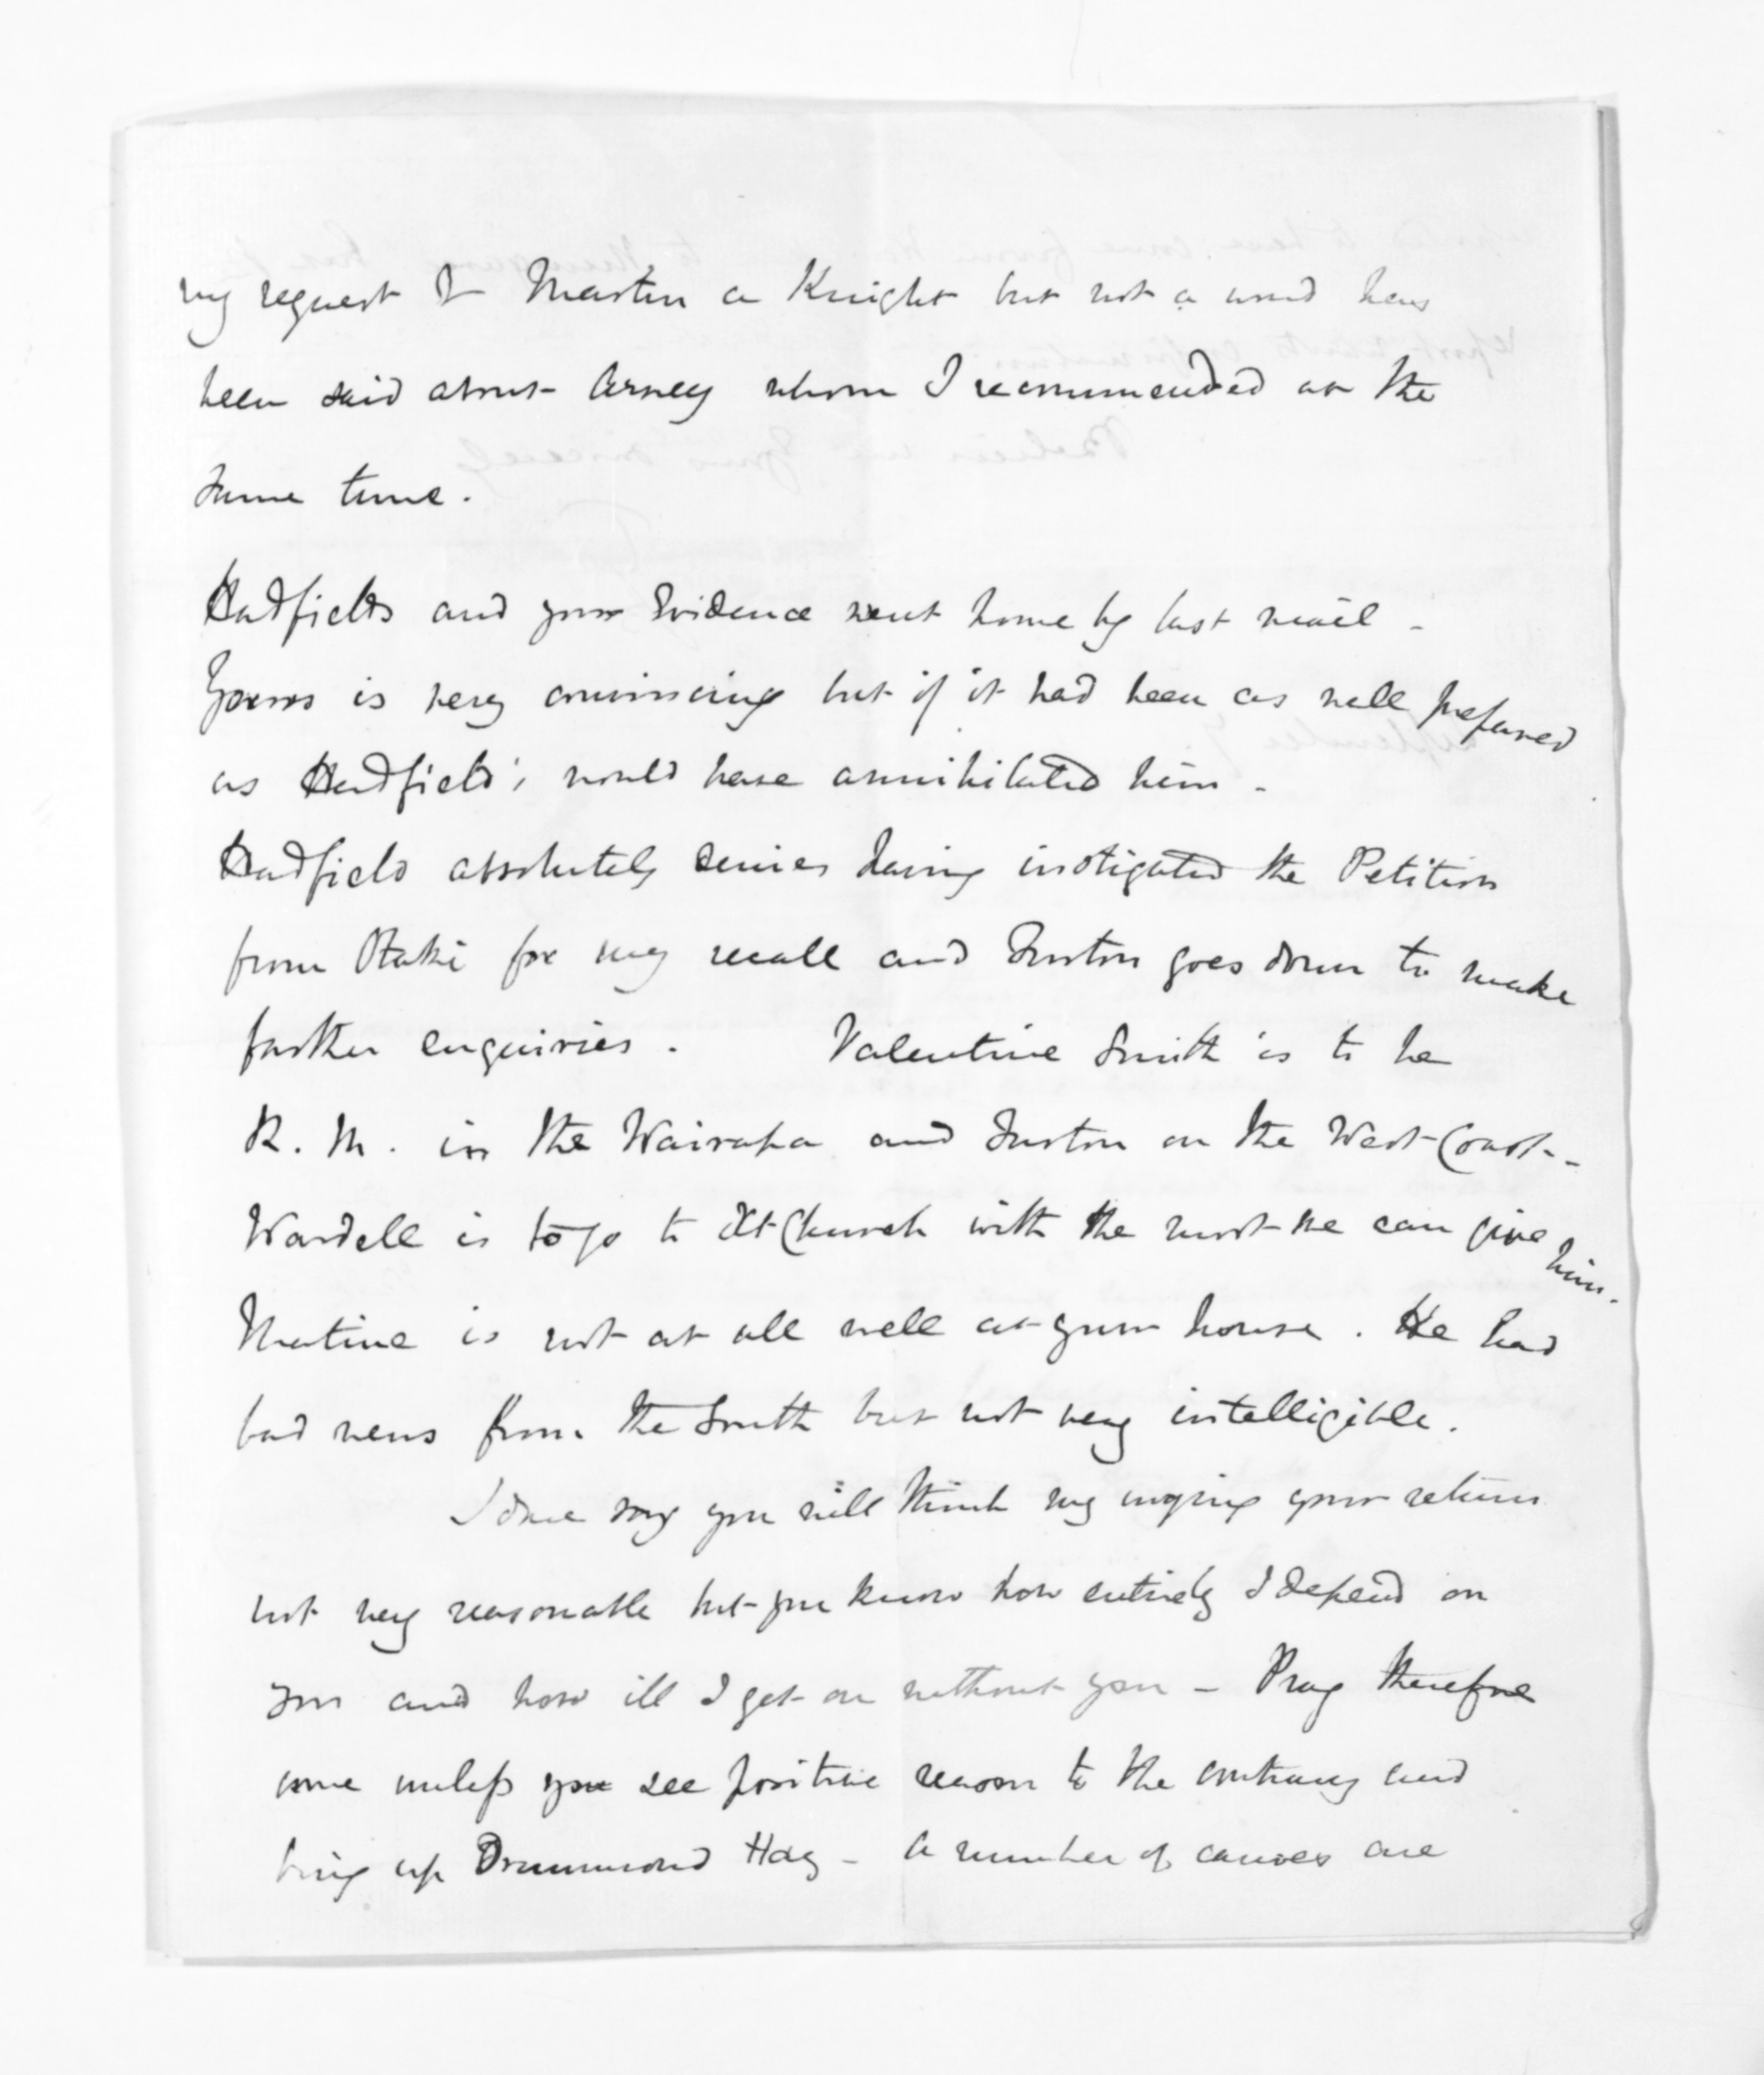 my request & Martin a Knight but not a word has
been said about Arney whom I recommended at the
same time.
Hadfields and your Evidence went home by last mail -
Yours is very convincing but if it had been as well prepared
as Hadfield's would have annihilated him -
Hadfield absolutely denies having instigated the Petition
from Otaki for my recall and Turton goes down to make
further enquiries. Valentine Smith is to be
R. M. in the Wairapa and Turton on the West Coast -
Wardell is to go to Xt Church with the most we can give him.
Matine is not at all well at your house. He had
bad news from the South but not very intelligible.
I dare say you will think my urging your return
not very reasonable but you know how entirely I depend on
you and how ill I get on without you - Pray therefore
come unless you see positive reason to the contrary and
bring up Drummond Hay - A number of canoes are